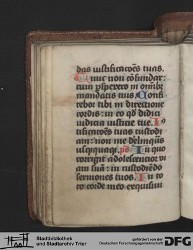 das iustificacoes tuas.
Tunc non cōfundar:
cum pspexero in omnibȝ
mandatis tuis Confi
tebor tibi in directione
cordis: in eo qđ didici
iudicia iusticie tue. I
ustificacōes tuas custodi
am: non me delinquas
usquequaqȝ. ps In quo
corrigit adolescentior vi
am suā: in custodiēdo
sermones tuos. In to
to corde meo exquisiui
Stadtbibliothek
und Stadtarchiv Trier
gefördert von der
Deutschen Forschungsgemeinschaft
DFG